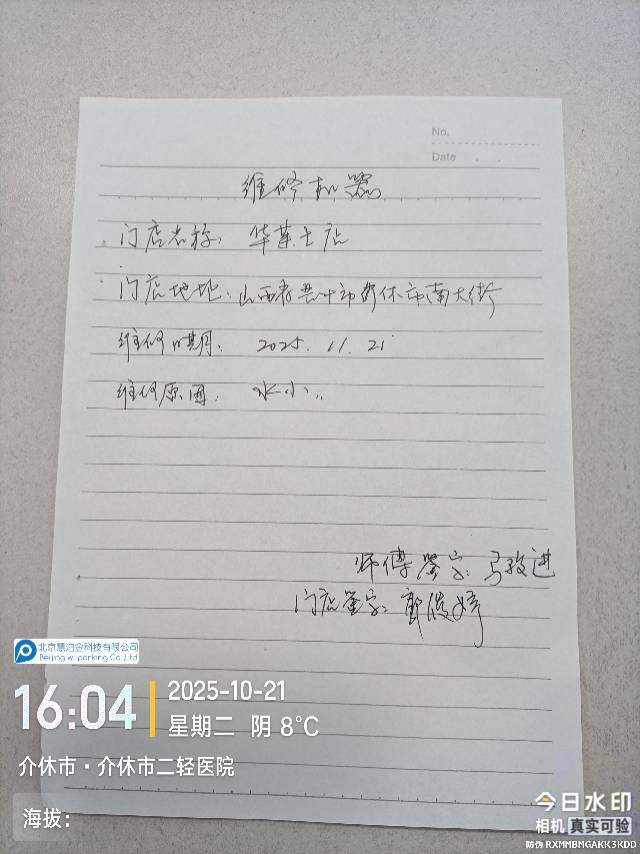 No.
Date
维修机器
门店名称: 华莱士店
门店地址: 山西省晋中市介休市南大街
维修日期: 2025.11.21
维修原因: 水小..
师傅签字:
门店签字:
北京慧泊金科技有限公司
Beijing w-parking Co.Ltd
16:04
2025-10-21
星期二 阴 8°C
介休市·介休市二轻医院
海拔:
今日水印
相机 真实可验
防伪 RXMMBMGAKK3KDD